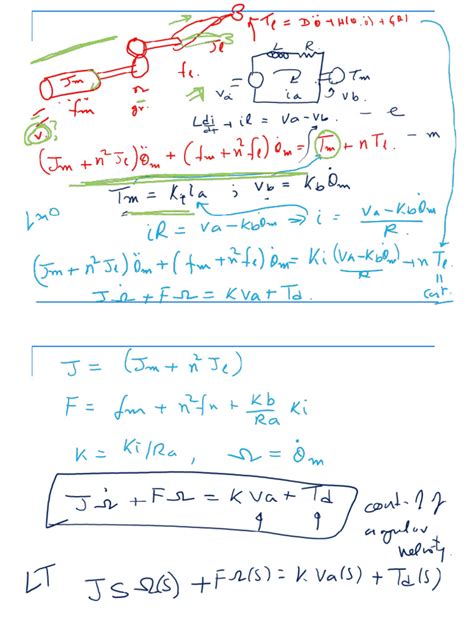 Tl = Dθ̈ + H(θ,θ̇) + G(θ)
Jm Jl
fm gr. fl.
L R.
va ia Tm
vb.
v?
L di/dt + iR = va - vb - e
(Jm + n² Jl) θ̈m + (fm + n² fl) θ̇m = Tm + n Tl - m
Tm = Ki ia ; vb = Kb θ̇m
L≈0
iR = va - Kb θ̇m ⇒ i = (va - Kb θ̇m)/R.
(Jm + n² Jl) θ̈m + (fm + n² fl) θ̇m = Ki (va - Kb θ̇m)/R + n Tl
J Ω̇ + F Ω = K va + Td.
J = (Jm + n² Jl)
F = fm + n² fn + Kb/Ra Ki
K = Ki/Ra , Ω = θ̇m
J Ω̇ + F Ω = K va + Td
cont. of
angular
velocity
LT J S Ω(s) + F Ω(s) = K Va(s) + Td(s)